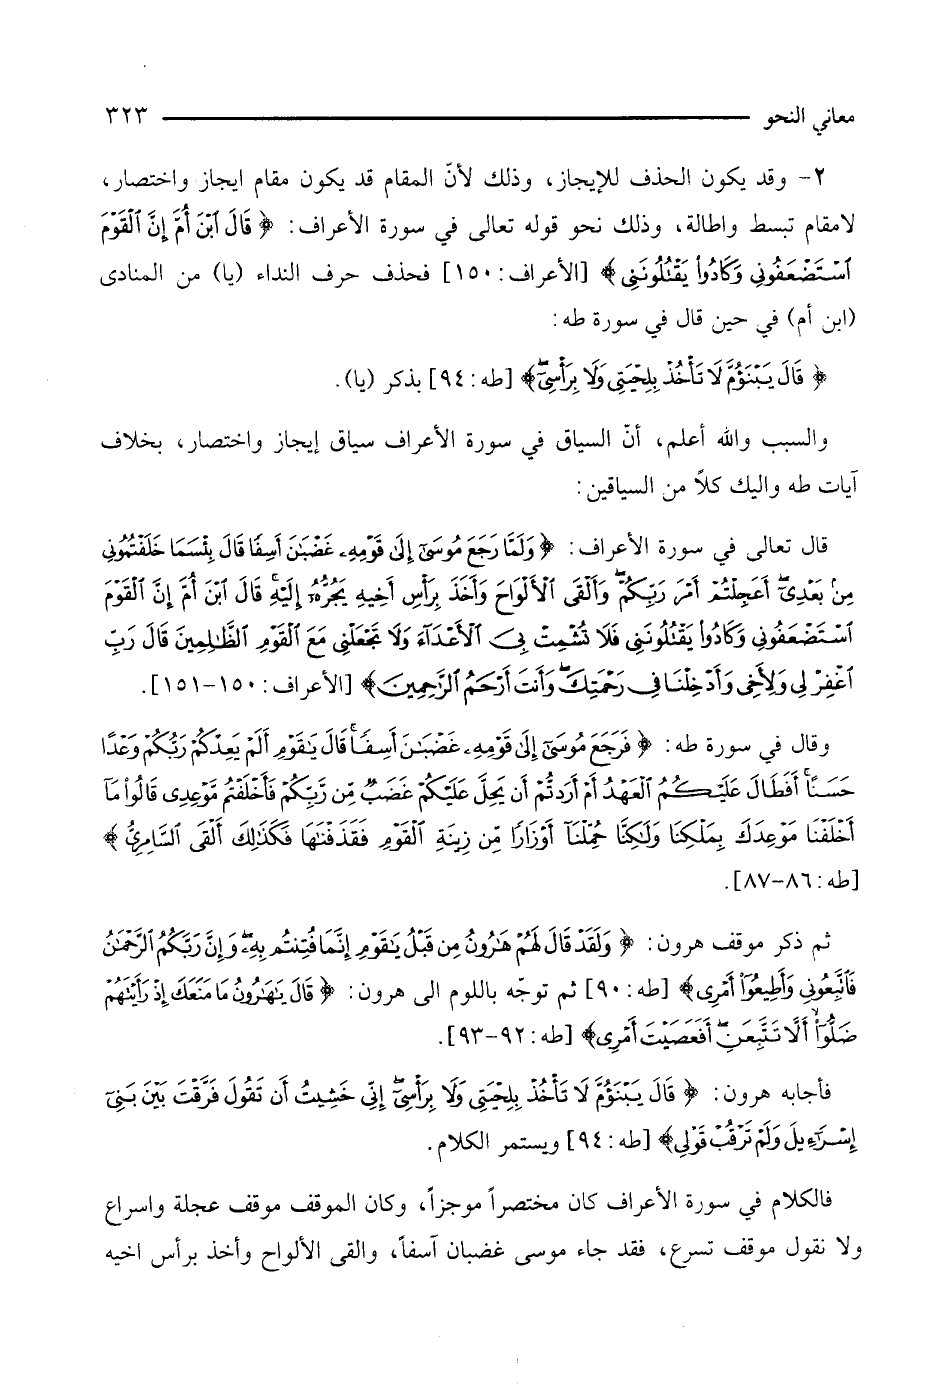 معاني النحو ٣٢٣
٢- وقد يكون الحذف للإيجاز، وذلك لأنّ المقام قد يكون مقام ايجاز واختصار،
لامقام تبسط واطالة، وذلك نحو قوله تعالى في سورة الأعراف: ﴿ قَالَ ٱبۡنَ أُمَّ إِنَّ ٱلۡقَوۡمَ
ٱسۡتَضۡعَفُونِي وَكَادُواْ يَقۡتُلُونَنِي ﴾ [الأعراف: ١٥٠] فحذف حرف النداء (يا) من المنادى
(ابن أم) في حين قال في سورة طه:
﴿ قَالَ يَبۡنَؤُمَّ لَا تَأۡخُذۡ بِلِحۡيَتِي وَلَا بِرَأۡسِيٓۖ﴾ [طه: ٩٤] بذكر (يا).
والسبب والله أعلم، أنّ السياق في سورة الأعراف سياق إيجاز واختصار، بخلاف
آيات طه واليك كلاً من السياقين:
قال تعالى في سورة الأعراف: ﴿ وَلَمَّا رَجَعَ مُوسَىٰٓ إِلَىٰ قَوۡمِهِۦ غَضۡبَٰنَ أَسِفٗا قَالَ بِئۡسَمَا خَلَفۡتُمُونِي
مِنۢ بَعۡدِيٓۖ أَعَجِلۡتُمۡ أَمۡرَ رَبِّكُمۡۖ وَأَلۡقَى ٱلۡأَلۡوَاحَ وَأَخَذَ بِرَأۡسِ أَخِيهِ يَجُرُّهُۥٓ إِلَيۡهِۚ قَالَ ٱبۡنَ أُمَّ إِنَّ ٱلۡقَوۡمَ
ٱسۡتَضۡعَفُونِي وَكَادُواْ يَقۡتُلُونَنِي فَلَا تُشۡمِتۡ بِيَ ٱلۡأَعۡدَآءَ وَلَا تَجۡعَلۡنِي مَعَ ٱلۡقَوۡمِ ٱلظَّٰلِمِينَ قَالَ رَبِّ
ٱغۡفِرۡ لِي وَلِأَخِي وَأَدۡخِلۡنَا فِي رَحۡمَتِكَۖ وَأَنتَ أَرۡحَمُ ٱلرَّٰحِمِينَ﴾ [الأعراف: ١٥٠-١٥١].
وقال في سورة طه: ﴿ فَرَجَعَ مُوسَىٰٓ إِلَىٰ قَوۡمِهِۦ غَضۡبَٰنَ أَسِفٗاۚ قَالَ يَٰقَوۡمِ أَلَمۡ يَعِدۡكُمۡ رَبُّكُمۡ وَعۡدًا
حَسَنًاۚ أَفَطَالَ عَلَيۡكُمُ ٱلۡعَهۡدُ أَمۡ أَرَدتُّمۡ أَن يَحِلَّ عَلَيۡكُمۡ غَضَبٞ مِّن رَّبِّكُمۡ فَأَخۡلَفۡتُم مَّوۡعِدِي قَالُواْ مَآ
أَخۡلَفۡنَا مَوۡعِدَكَ بِمَلۡكِنَا وَلَٰكِنَّا حُمِّلۡنَآ أَوۡزَارٗا مِّن زِينَةِ ٱلۡقَوۡمِ فَقَذَفۡنَٰهَا فَكَذَٰلِكَ أَلۡقَى ٱلسَّامِرِيُّ ﴾
[طه: ٨٦-٨٧].
ثم ذكر موقف هرون: ﴿ وَلَقَدۡ قَالَ لَهُمۡ هَٰرُونُ مِن قَبۡلُ يَٰقَوۡمِ إِنَّمَا فُتِنتُم بِهِۦۖ وَإِنَّ رَبَّكُمُ ٱلرَّحۡمَٰنُ
فَٱتَّبِعُونِي وَأَطِيعُوٓاْ أَمۡرِي﴾ [طه: ٩٠] ثم توجّه باللوم الى هرون: ﴿ قَالَ يَٰهَٰرُونُ مَا مَنَعَكَ إِذۡ رَأَيۡتَهُمۡ
ضَلُّوٓاْ أَلَّا تَتَّبِعَنِۖ أَفَعَصَيۡتَ أَمۡرِي﴾ [طه: ٩٢-٩٣].
فأجابه هرون: ﴿ قَالَ يَبۡنَؤُمَّ لَا تَأۡخُذۡ بِلِحۡيَتِي وَلَا بِرَأۡسِيٓۖ إِنِّي خَشِيتُ أَن تَقُولَ فَرَّقۡتَ بَيۡنَ بَنِيٓ
إِسۡرَٰٓءِيلَ وَلَمۡ تَرۡقُبۡ قَوۡلِي﴾ [طه: ٩٤] ويستمر الكلام.
فالكلام في سورة الأعراف كان مختصراً موجزاً، وكان الموقف موقف عجلة واسراع
ولا نقول موقف تسرع، فقد جاء موسى غضبان آسفاً، والقى الألواح وأخذ برأس اخيه